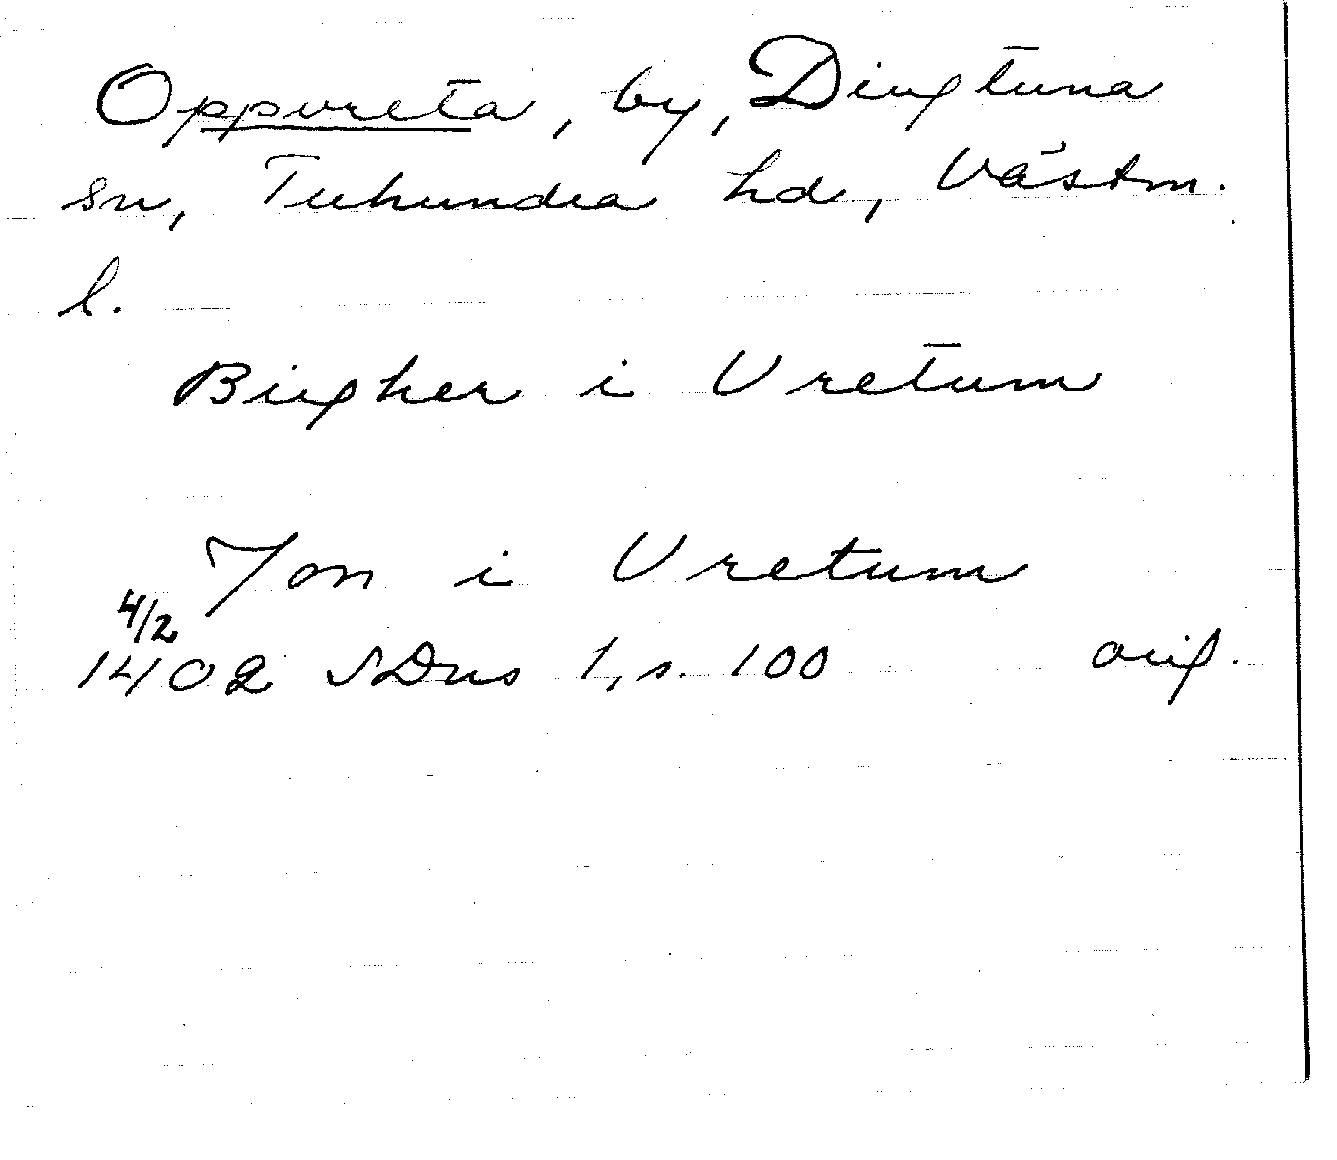 Oppvreta, by, Dingtuna
sn, Tuhundra hd, Västm.
l.
Birgher i Vretum
Jon i Vretum
4/2
1402 SDns 1, s. 100 orig.